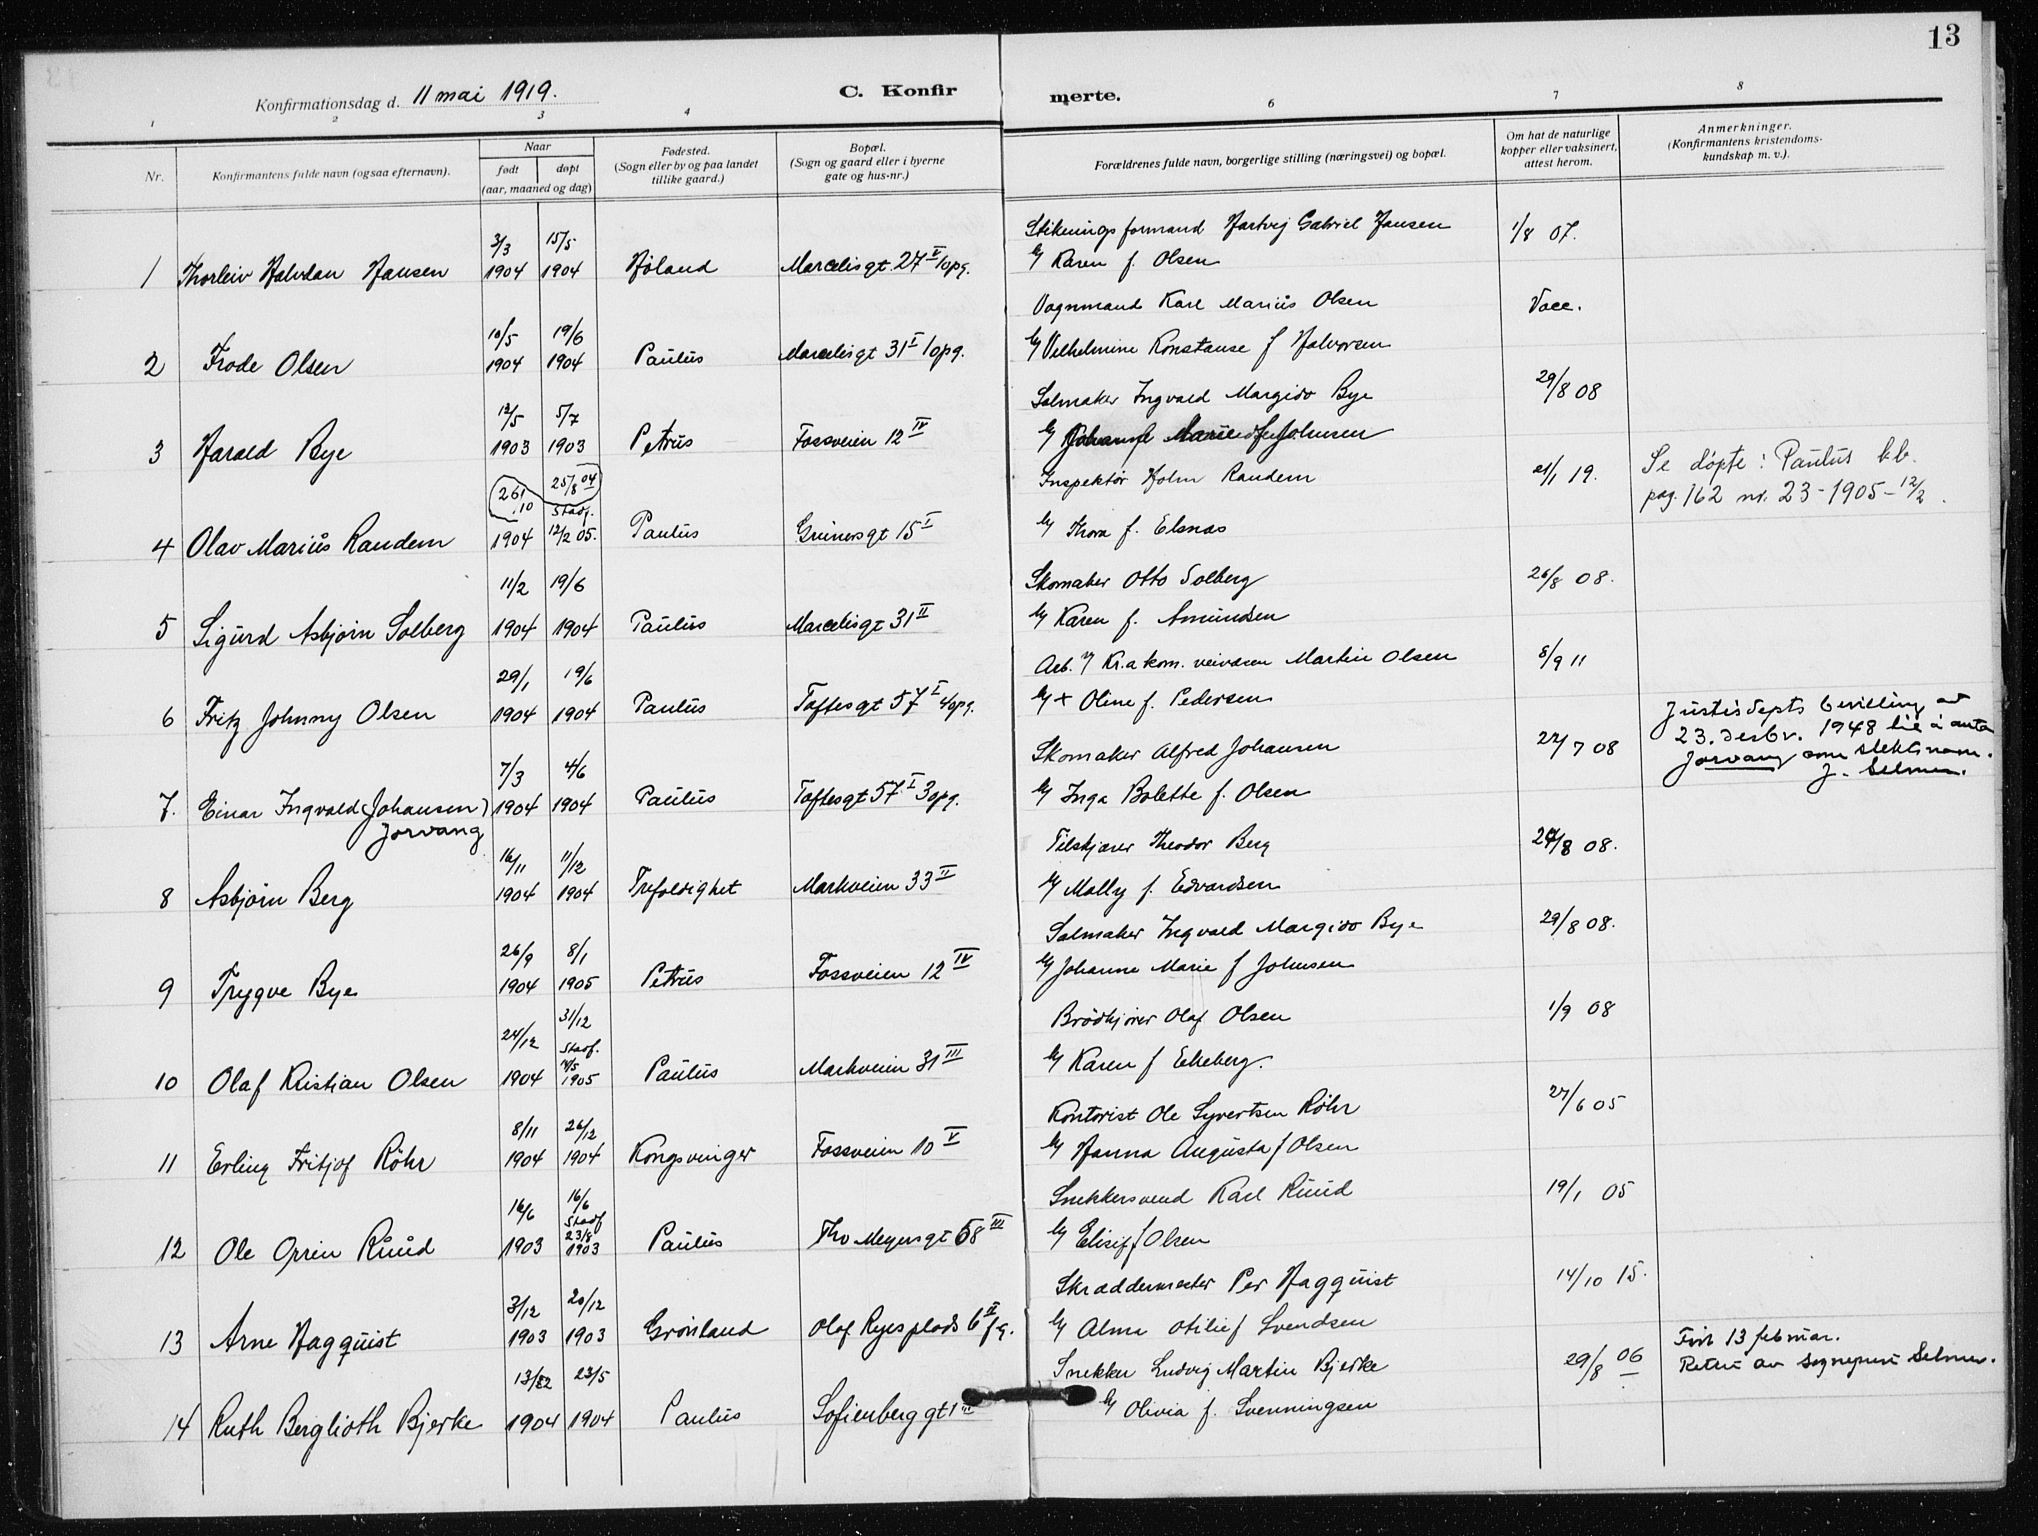 13
Konfirmationsdag d. 11 mai 1919.
C. Konfirmerte.
1 2 3 4 6 7 8
Nr.
Konfirmantens fulde navn (ogsaa efternavn).
Naar
født døpt
(aar, maaned og dag)
Fødested.
(Sogn eller by og paa landet
tillike gaard.)
Bopæl.
(Sogn og gaard eller i byerne
gate og hus-nr.)
Forældrenes fulde navn, borgerlige stilling (næringsvei) og bopæl.
Om hat de naturlige
kopper eller vaksinert,
attest herom.
Anmerkninger.
(Konfirmantens kristendoms-
kundskap m. v.).
3/3 15/5 Stikningsformand Hartvig Gabriel Hansen 1/8 07.
1 Thorleiv Halvdan Hansen 1904 1904 Høland Marcelisgt 27 V 1opg. Karen f. Olsen
10/5 19/6 Vognmand Karl Marius Olsen Vacc.
2 Frode Olsen 1904 1904 Paulus Marcelisgt 31 I 1opg. Vilhelmine Konstanse f Halvorsen
12/5 5/7 Salmaker Ingvald Margido Bye 29/8 08
3 Harald Bye 1903 1903 Petrus Fossveien 12 IV Johanne Marie f Johnsen
26/10 25/8 04 Inspektør Holm Randem 21/1 19. Se døpte: Paulus kb.
stadf. pag. 162 nr. 23 - 1905 - 12/2.
4 Olav Marius Randem 1904 12/2 05. Paulus Grünersgt 15 I Thora f. Elsnas
11/2 19/6 Skomaker Otto Solberg 26/8 08.
5 Sigurd Asbjørn Solberg 1904 1904 Paulus Marcelisgt 31 II Karen f. Amundsen
29/1 19/6 Arb. v Kr.a kom. veivæsen Martin Olsen 8/9 11
6 Fritz Johnny Olsen 1904 1904 Paulus Toftesgt 57 I 4opg. + Oline f. Pedersen
7/3 4/6 Skomaker Alfred Johansen 22/7 08 Justisdepts bevilling av
23. desbr. 1948 til å anta
Jorvang som slektsnavn.
J. Selmer.
7. Einar Ingvald (Johansen) 1904 1904 Paulus Toftesgt 57 I 3opg. Inga Bolette f. Olsen
Jorvang
16/11 11/12 Tilskjærer Theodor Berg 24/8 08.
8 Asbjørn Berg 1904 1904 Trefoldighet Markveien 33 II Molly f. Edvardsen
26/9 8/1 Salmaker Ingvald Margido Bye 29/8 08.
9 Trygve Bye 1904 1905 Petrus Fossveien 12 IV Johanne Marie f Johnsen
24/12 31/12 Brødkjører Olaf Olsen 1/9 08
Stadf.
14/5
10 Olaf Kristian Olsen 1904 1905 Paulus Markveien 31 III Karen f Ekeberg.
8/11 26/12 Kontorist Ole Syvertsen Røhr 27/6 05
11 Erling Fritjof Røhr 1904 1904 Kongsvinger Fossveien 10 V Hanna Augusta f Olsen
16/6 16/6 Snekkersvend Karl Ruud 19/1 05
Stadf
23/8
12 Ole Orrin Ruud 1903 1903 Paulus Thv Meyersgt 68 III Elisif f Olsen
3/12 20/12 Skræddermester Per Hagquist 14/10 15.
13 Arne Hagquist 1903 1903 Grønland Olaf Ryes plads 6 II fg. Alma Otilie f Svendsen
13/2 23/5 Snekker Ludvig Martin Bjerke 29/8 06 Født 13 februar.
Rettet av sogneprest Selmer.
14 Ruth Berglioth Bjerke 1904 1904 Paulus Sofienberggt 1 III Olivia f. Svenningsen